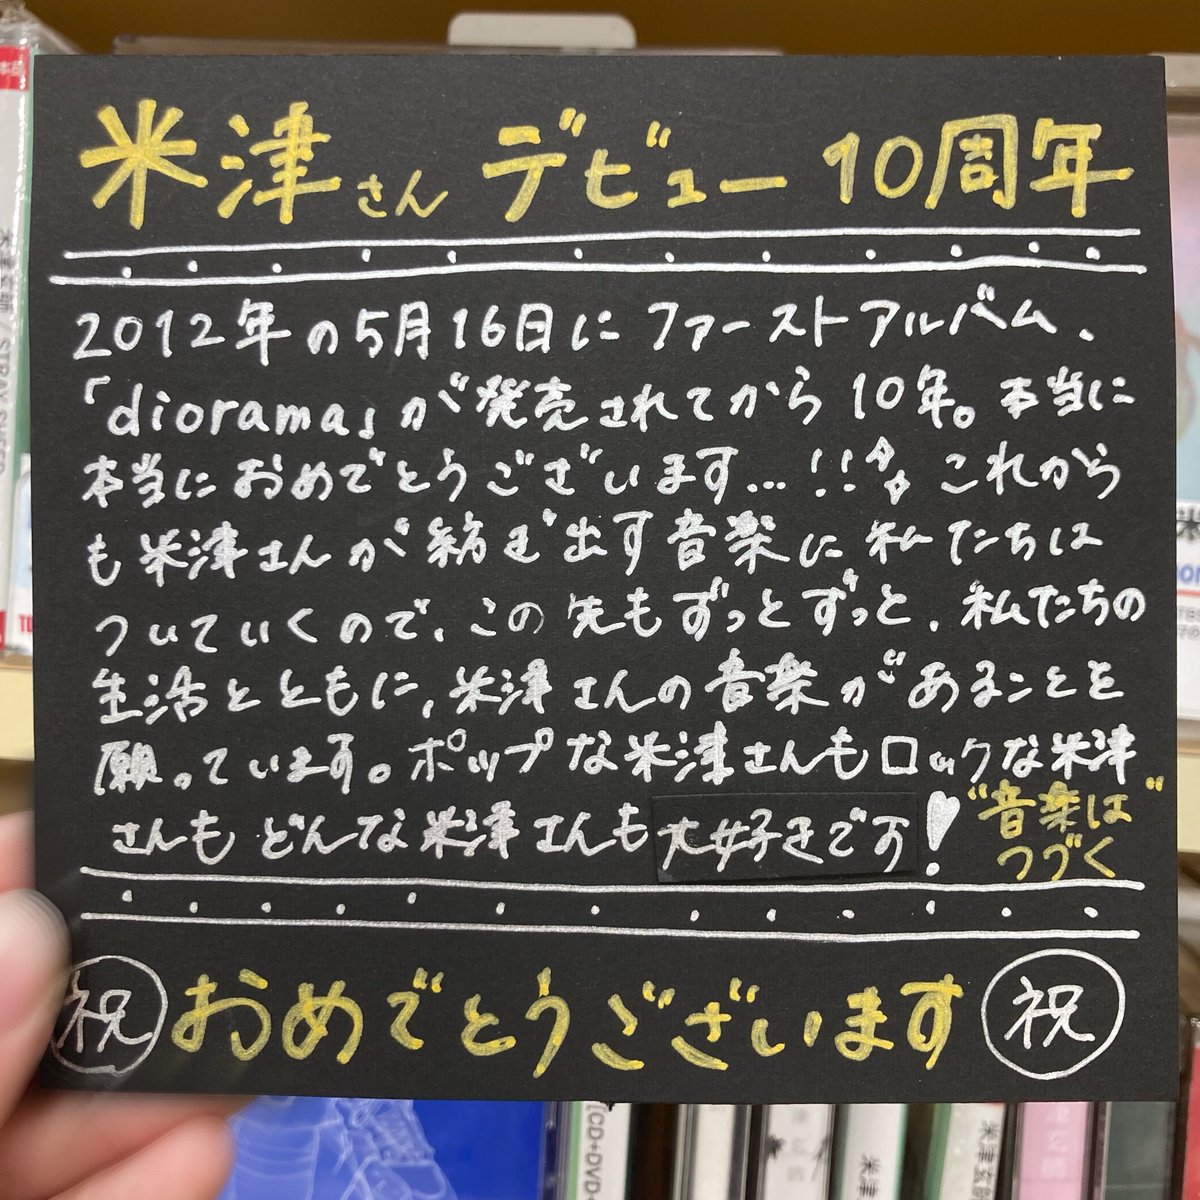 米津さん デビュー 10周年
2012年の5月16日にファーストアルバム、
「diorama」が発売されてから10年。本当に
本当におめでとうございます...!! これから
も米津さんが紡ぎ出す音楽に私たちは
ついていくので、この先もずっとずっと、私たちの
生活とともに、米津さんの音楽があることを
願っています。ポップな米津さんもロックな米津
さんもどんな米津さんも大好きです!
"音楽は"
つづく
祝 おめでとうございます 祝
米津玄師 / STRAY SHEEP
[CD+DVD
米津
米津玄師